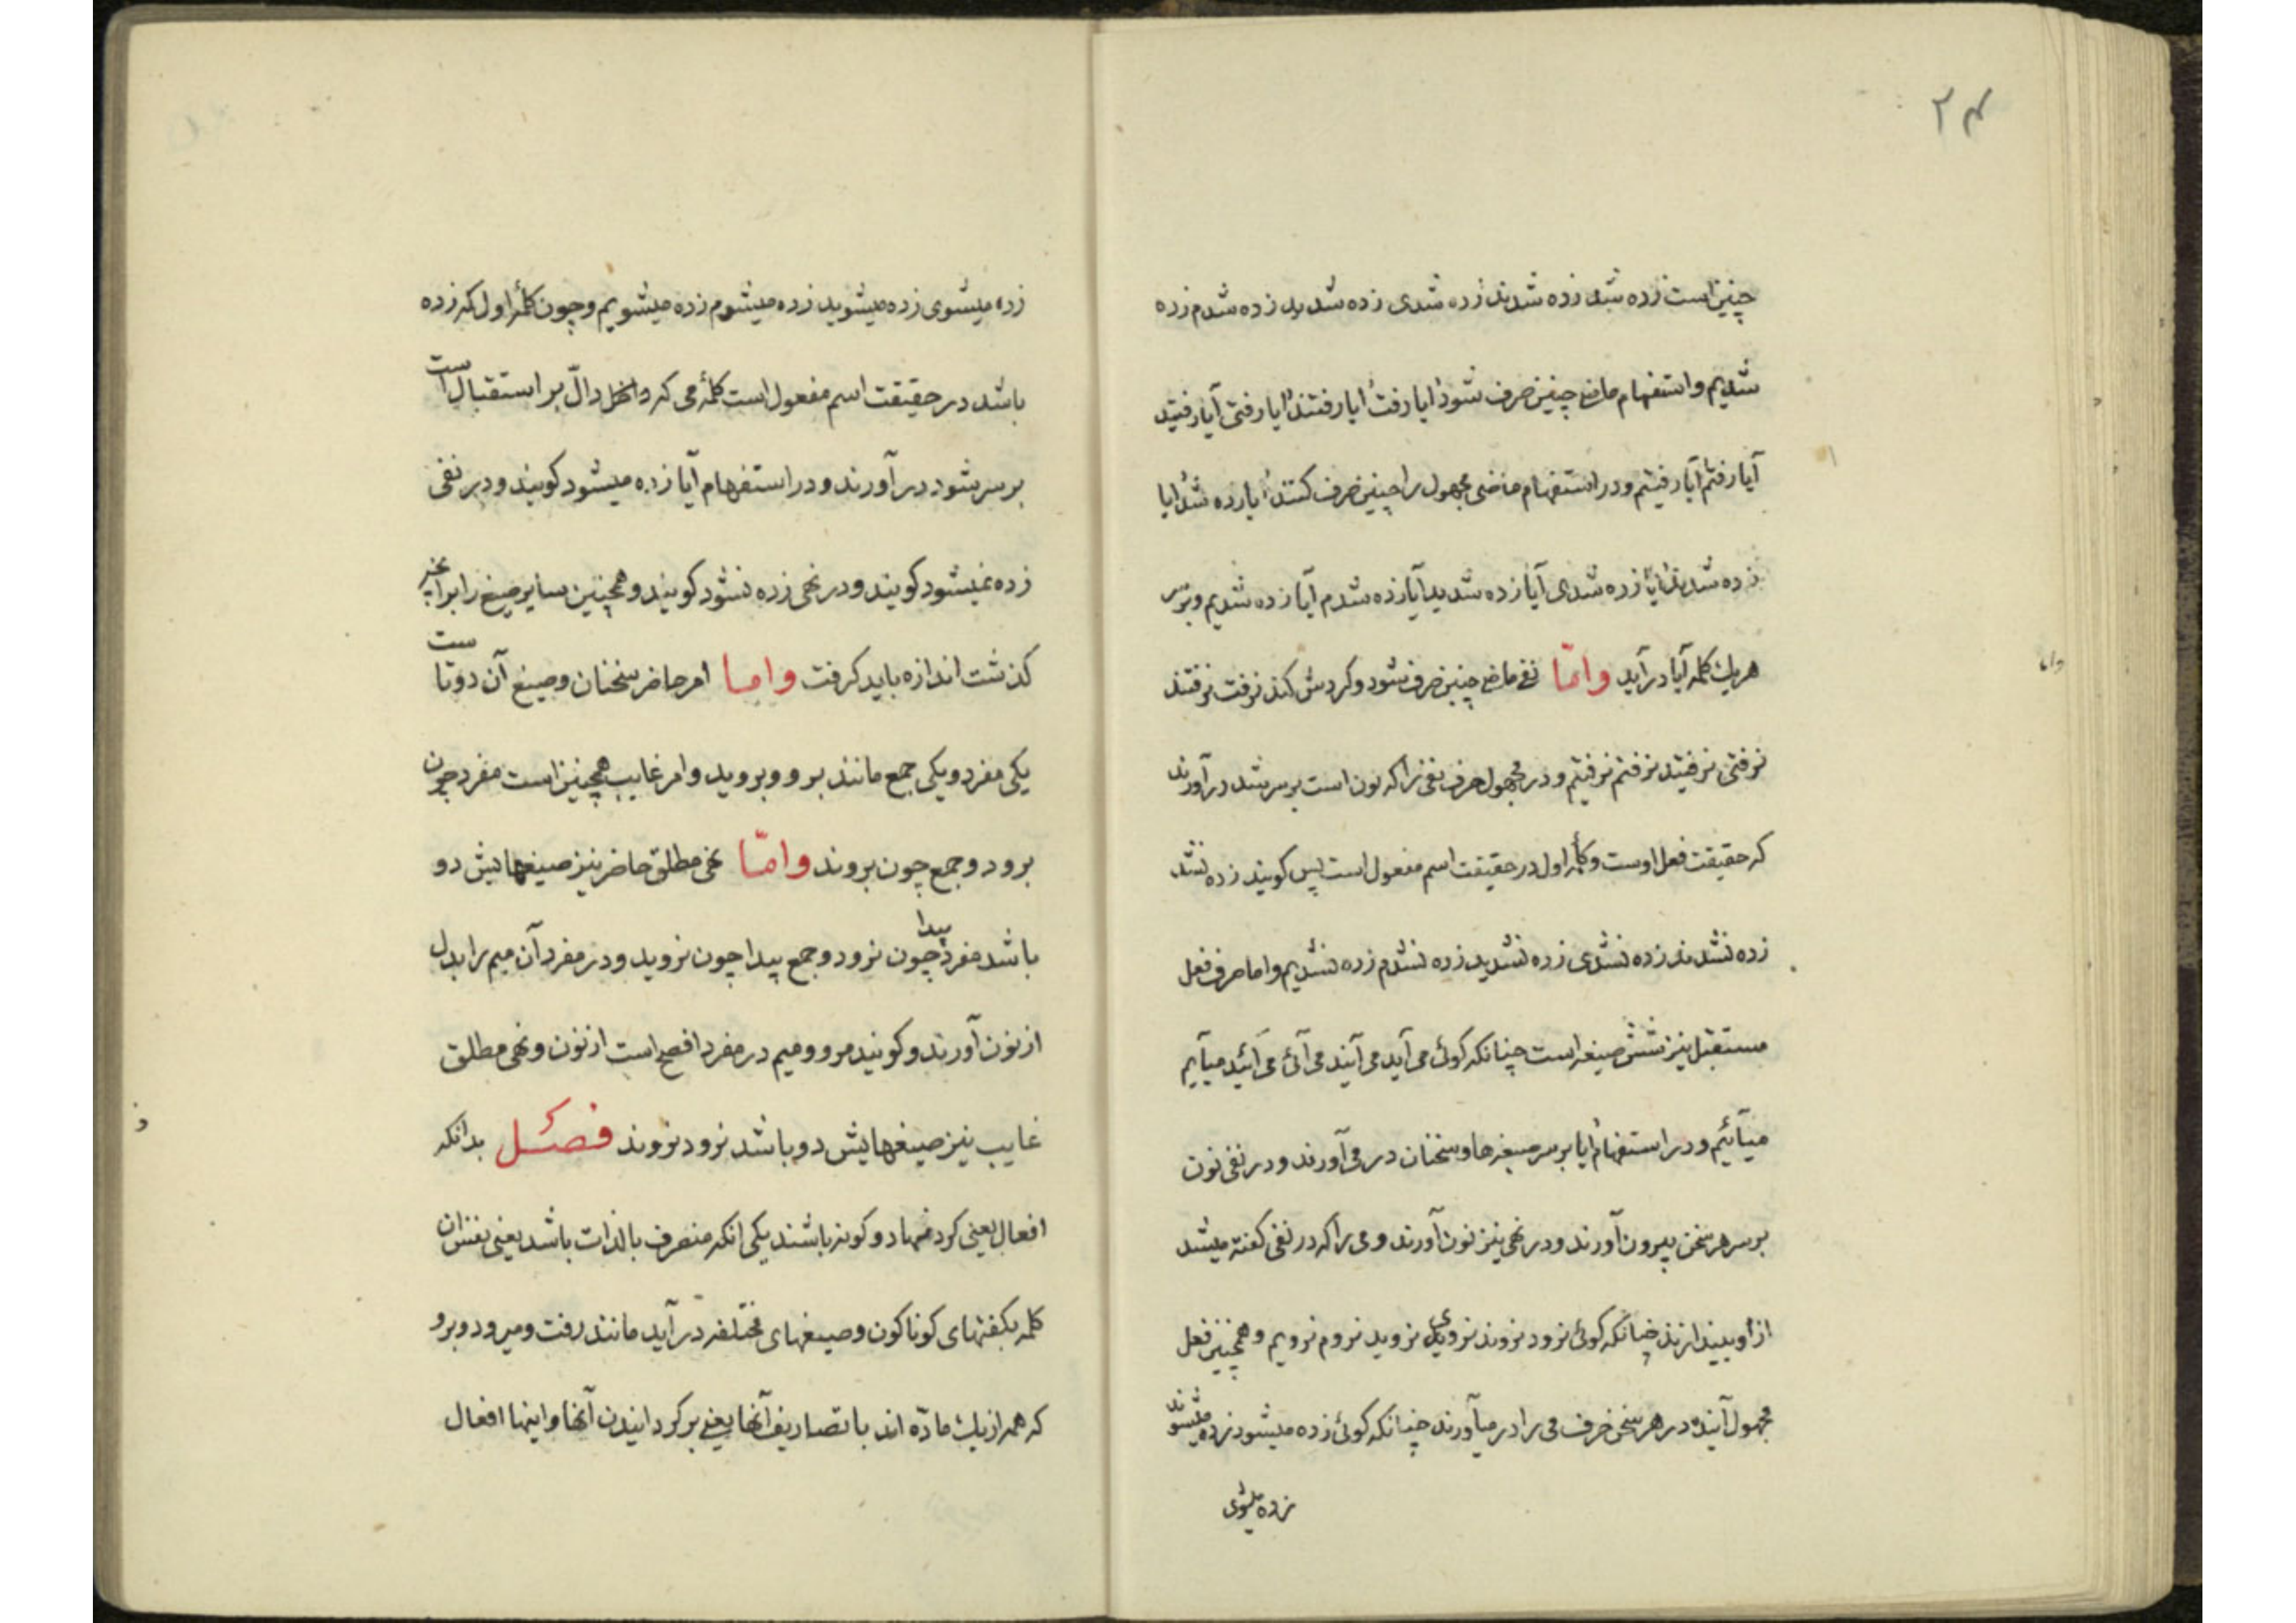 ۲۴
چنین است زده شد زده شدند زده شدی زده شدید زده شدم زده
شدیم و استفهام ماضی چنین صرف شود آیا رفت آیا رفتند آیا رفتی آیا رفتید
آیا رفتم آیا رفتیم و در استفهام ماضی مجهول را چنین صرف کنند آیا زده شد آیا
زده شدند آیا زده شدی آیا زده شدید آیا زده شدم آیا زده شدیم و بر سر
هر یك کلمه آیا در آید و امّا نفی ماضی چنین صرف شود و کردش کند نرفت نرفتند
نرفتی نرفتید نرفتم نرفتیم و در مجهول حرف نفی را که نون است بر سر شد در آورند
که حقیقت فعل اوست و کلمهٔ اول در حقیقت اسم مفعول است پس کویند زده نشد
زده نشدند زده نشدی زده نشدید زده نشدم زده نشدیم و اما صرف فعل
مستقبل نیز شش صیغه است چنانکه کوئی می آید می آیند می آئی می آئید میآیم
میآئیم و در استفهام آیا بر سر صیغه ها و سخنان در می آورند و در نفی نون
بر سر هر سخن بیرون آورند و در نهی نیز نون آورند و می را که در نفی کفته میشد
از او بیندازند چنانکه کوئی نرود نروند نروی نروید نروم نرویم و همچنین فعل
مجهول آینده در هر سخن حرف می را در میآورند چنانکه کوئی زده میشود زده میشوند
زده میشوی
زده میشوی زده میشوید زده میشوم زده میشویم و چون کلمهٔ اول که زده
باشد در حقیقت اسم مفعول است کلمهٔ می که داخل دالّ بر استقبال است
بر سر شود در آورند و در استفهام آیا زده میشود کویند و در نفی
زده نمیشود کویند و در نهی زده نشود کویند و همچنین سایر صیغ را بر آنچه
کذشت اندازه باید کرفت و امـا امر حاضر سخنان و صیغ آن دوتا ست
یکی مفرد و یکی جمع مانند برو و بروید و امر غایب همچنین است مفرد چون
برود و جمع چون بروند و امّـا نهی مطلق حاضر نیز صیغهایش دو
باشد مفرد پیدا چون نرود و جمع پیدا چون نروید و در مفرد آن میم را بدل
از نون آورند و کویند مرو و میم در مفرد افصح است از نون و نهی مطلق
غایب نیز صیغهایش دو باشد نرود نروند فصـل بدانکه
افعال یعنی کردنها دو کونه باشند یکی انکه منصرف بالذات باشد یعنی بنفس ان
کلمه بکفتهای کوناکون و صیغهای مختلفه در آید مانند رفت و میرود و برو
که همه از یك مادّه اند با تصاریف آنها یعنی بر کردانیدن آنها و اینها افعال